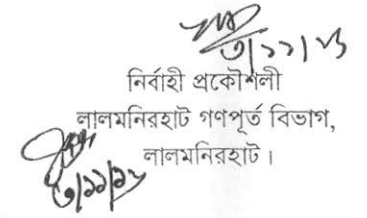 ৩/১১/১৬
নির্বাহী প্রকৌশলী
লালমনিরহাট গণপূর্ত বিভাগ,
লালমনিরহাট।
৩/১১/১৬